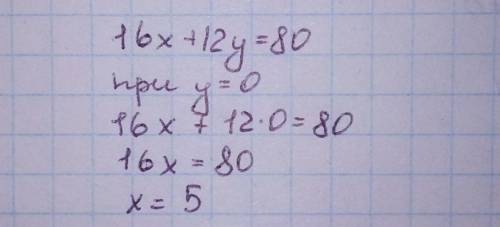 16x+12y=80
при y=0
16x + 12·0=80
16x = 80
x = 5